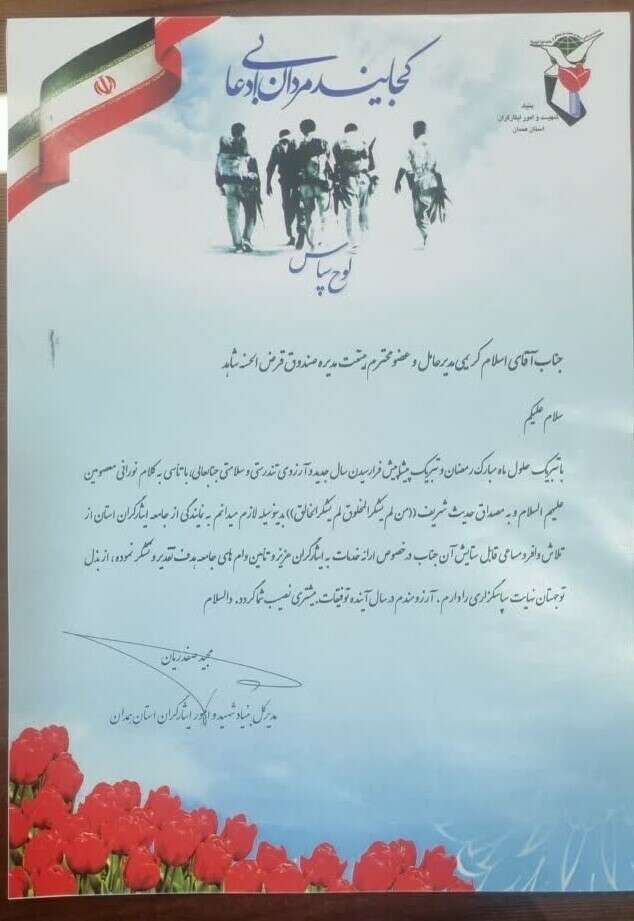 کجایند مردان بی ادعا
بنیاد
شهید و امور ایثارگران
استان همدان
لوح سپاس
جناب آقای اسلام کریمی مدیرعامل و عضو محترم هیئت مدیره صندوق قرض الحسنه شاهد
سلام علیکم
با تبریک حلول ماه مبارک رمضان و تبریک پیشاپیش فرارسیدن سال جدید و آرزوی تندرستی و سلامتی جنابعالی، با تاسی به کلام نورانی معصومین
علیهم السلام و به مصداق حدیث شریف ((من لم یشکر المخلوق لم یشکر الخالق)) بدینوسیله لازم میدانم به نمایندگی از جامعه ایثارگران استان از
تلاش وافر و مساعی قابل ستایش آن جناب در خصوص ارائه خدمات به ایثارگران عزیز و تامین وام های جامعه هدف تقدیر و تشکر نموده ، از بذل
توجهتان نهایت سپاسگزاری را دارم . آرزومندم در سال آینده توفیقات بیشتری نصیب شما گردد. والسلام
مجید صفدریان
مدیرکل بنیاد شهید و امور ایثارگران استان همدان